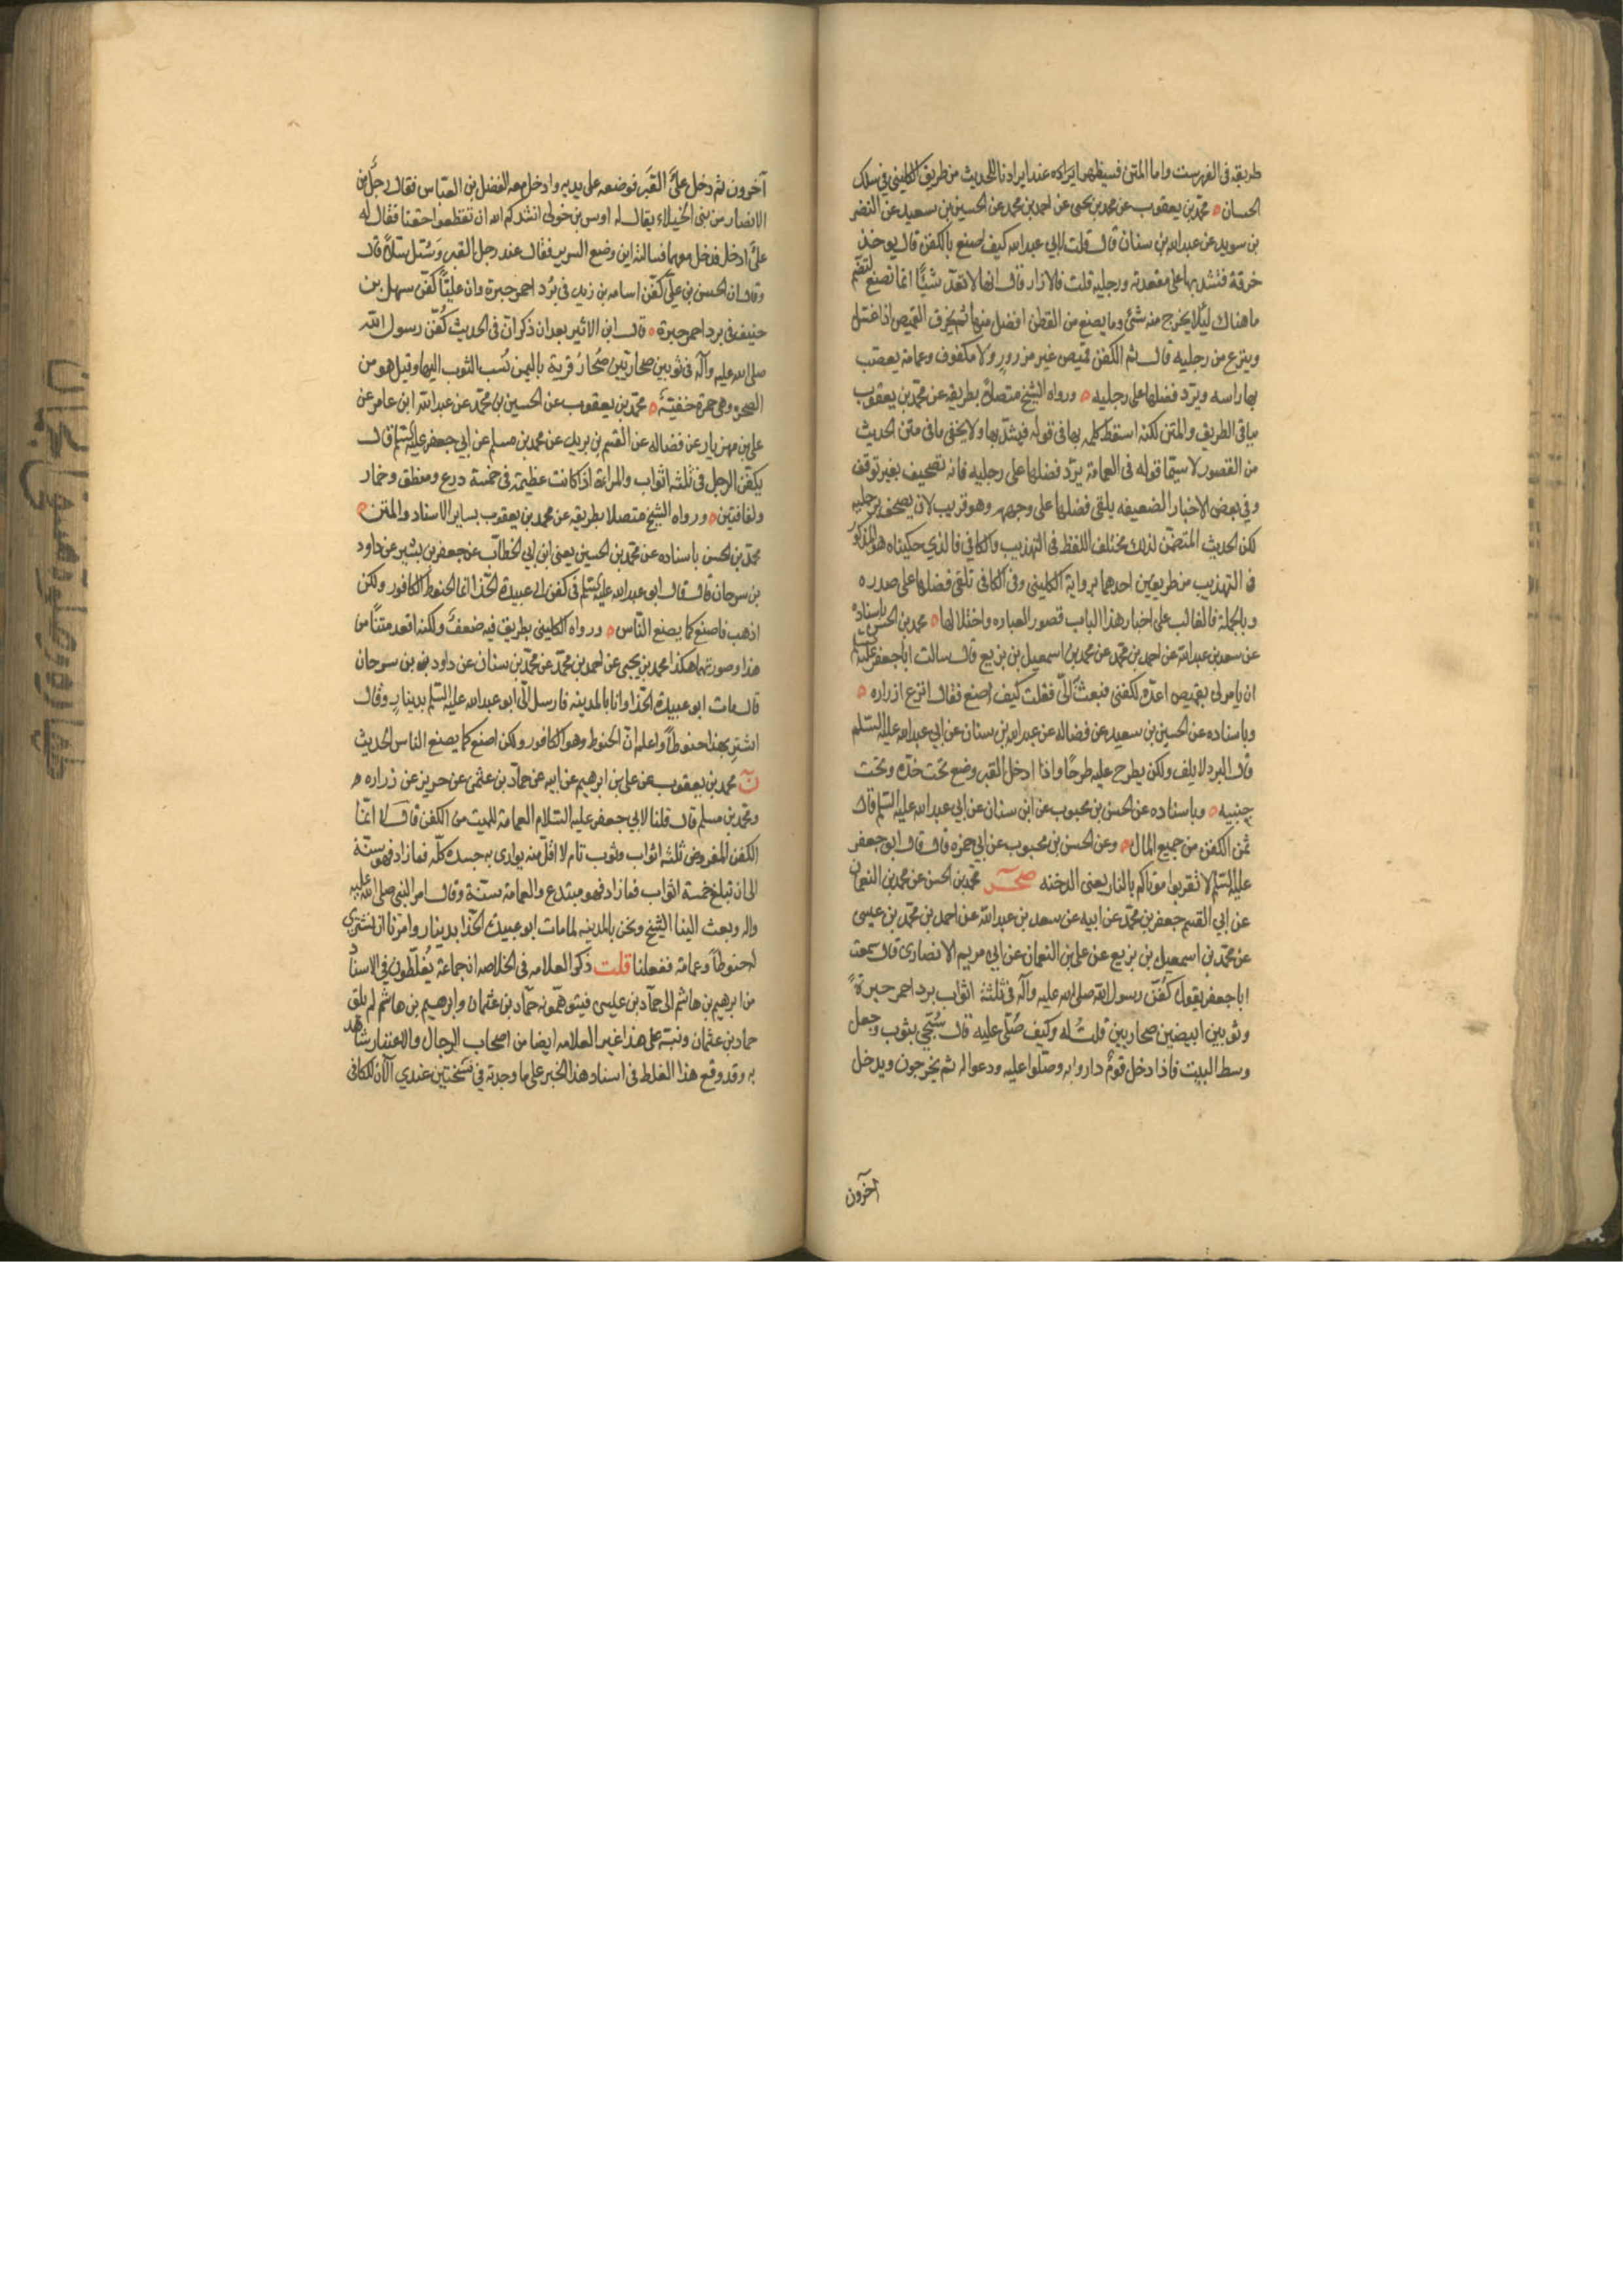 طريقه في الفهرست واما المتن فسيظهر ايراده عند ايرادنا للحديث من طريق الكليني في سلك
الحسان محمد بن يعقوب عن محمد بن يحيى عن احمد بن محمد عن الحسين بن سعيد عن النضر
بن سويد عن عبد الله بن سنان قال قلت لابي عبد الله كيف اصنع بالكفن قال يوخذ
خرقة فتشد بها على مقعدته ورجليه قلت فالازار قال انها لا تعد شيئا انما تصنع لتضم
ما هناك ليلا يخرج منه شئ وما يصنع من القطن افضل منها ثم يخرق القميص اذا غسل
وينزع من رجليه قال ثم الكفن قميص غير مزرور ولا مكفوف وعمامة يعصب
بها راسه ويرد فضلها على رجليه ورواه الشيخ متصلا بطريقه عن محمد بن يعقوب
بباقي الطريق والمتن لكنه اسقط كلمه بها في قوله فيشد بها ولا يخفى ما في متن الحديث
من القصور لا سيما قوله في العمامة يرد فضلها على رجليه فانه تصحيف بغير توقف
وفي بعض الاخبار الضعيفه يلقى فضلها على وجهه وهو قريب لان يصحف برجليه
لكن الحديث المتضمن لذلك مختلف اللفظ في التهذيب والكافي فالذي حكيناه هو المذكور
في التهذيب من طريقين احدهما برواية الكليني وفي الكافي تلقى فضلها على صدره
وبالجملة فالغالب على اخبار هذا الباب قصور العباره واختلالها محمد بن الحسن باسناده
عن سعد بن عبد الله عن احمد بن محمد عن محمد بن اسمعيل بن بزيع قال سالت ابا جعفر عليه السلم
ان يامر لي بقميص اعده لكفني فبعث الي فقلت كيف اصنع فقال انزع ازراره
وباسناده عن الحسين بن سعيد عن فضاله عن عبد الله بن سنان عن ابي عبد الله عليه السلم
قال البرد لا يلف ولكن يطرح عليه طرحا واذا ادخل القبر وضع تحت خده وتحت
جنبيه وباسناده عن الحسن بن محبوب عن ابن سنان عن ابي عبد الله عليه السلم قال
ثمن الكفن من جميع المال وعن الحسن بن محبوب عن ابي حمزه قال قال ابو جعفر
عليه السلم لا تقربوا موتاكم بالنار يعنى الدخنه صحر محمد بن الحسن عن محمد بن النعمان
عن ابي القسم جعفر بن محمد عن ابيه عن سعد بن عبد الله عن احمد بن محمد بن عيسى
عن محمد بن اسمعيل بن بزيع عن علي بن النعمان عن ابي مريم الانصارى قال سمعت
ابا جعفر يقول كفن رسول الله صلى الله عليه وآله في ثلثة اثواب برد احمر حبرة
وثوبين ابيضين صحاريين قلت له وكيف صلى عليه قال سجي بثوب وجعل
وسط البيت فاذا دخل قوم داروا به وصلوا عليه ودعوا له ثم يخرجون ويدخل
آخرون
آخرون ثم دخل علي القبر فوضعه على يديه وادخل معه الفضل بن العباس فقال رجل من
الانصار من بني الخيلاء يقال له اوس بن خولى انشدكم الله ان تقطعوا حقنا فقال له
علي ادخل فدخل معهما فسالته اين وضع السرير فقال عند رجل القبر وسل سلا قال
وقال ان الحسن بن علي كفن اسامه بن زيد في برد احمر حبرة وان عليا كفن سهل بن
حنيف في برد احمر حبرة قال ابن الاثير بعد ان ذكر ان في الحديث كفن رسول الله
صلى الله عليه وآله في ثوبين صحاريين صحار قرية باليمن نسب الثوب اليها وقيل هو من
الصحره وهي حمرة خفية محمد بن يعقوب عن الحسين بن محمد عن عبد الله ابن عامر عن
علي بن مهزيار عن فضاله عن القسم بن بريد عن محمد بن مسلم عن ابي جعفر عليه السلم قال
يكفن الرجل في ثلثه اثواب والمراة اذا كانت عظيمة في خمسة درع ومنطق وخمار
ولفافتين ورواه الشيخ متصلا بطريقه عن محمد بن يعقوب بساير الاسناد والمتن
محمد بن الحسن باسناده عن محمد بن الحسين يعنى ابن ابي الخطاب عن جعفر بن بشير عن داود
بن سرحان قال قال ابو عبد الله عليه السلم في كفن ابي عبيدة الحذا انما الحنوط الكافور ولكن
اذهب فاصنع كما يصنع الناس ورواه الكليني بطريق فيه ضعف ولكنه اقعد متنا من
هذا وصورتهما هكذا محمد بن يحيى عن احمد بن محمد عن محمد بن سنان عن داود بن سرحان
قال مات ابو عبيدة الحذا وانا بالمدينه فارسل الي ابو عبد الله عليه السلم بدينار وقال
اشتر بهذا حنوطا واعلم ان الحنوط هو الكافور ولكن اصنع كما يصنع الناس الحديث
ن محمد بن يعقوب عن علي بن ابرهيم عن ابيه عن حماد بن عثمن عن حريز عن زراره
ومحمد بن مسلم قال قلنا لابي جعفر عليه السلام العمامة للميت من الكفن قال لا انما
الكفن المفروض ثلثه اثواب وثوب تام لا اقل منه يوارى به جسده كله فما زاد فهو سنة
الى ان تبلغ خمسة اثواب فما زاد فهو مبتدع والعمامة سنة وقال امر النبي صلى الله عليه
واله وبعث الينا الشيخ ونحن بالمدينه لما مات ابو عبيدة الحذا بدينار وامرنا ان نشتري
له حنوطا وعمامة ففعلنا قلت ذكر العلامه في الخلاصه ان جماعة يغلطون في الاسناد
من ابرهيم بن هاشم الى حماد بن عيسى فيتوهمونه حماد بن عثمان وابرهيم بن هاشم لم يلق
حماد بن عثمان ونبه على هذا غير العلامه ايضا من اصحاب الرجال والاعتبار شاهد
به وقد وقع هذا الغلط في اسناد هذا الخبر على ما وجدته في نسختين عندي الآن للكافي